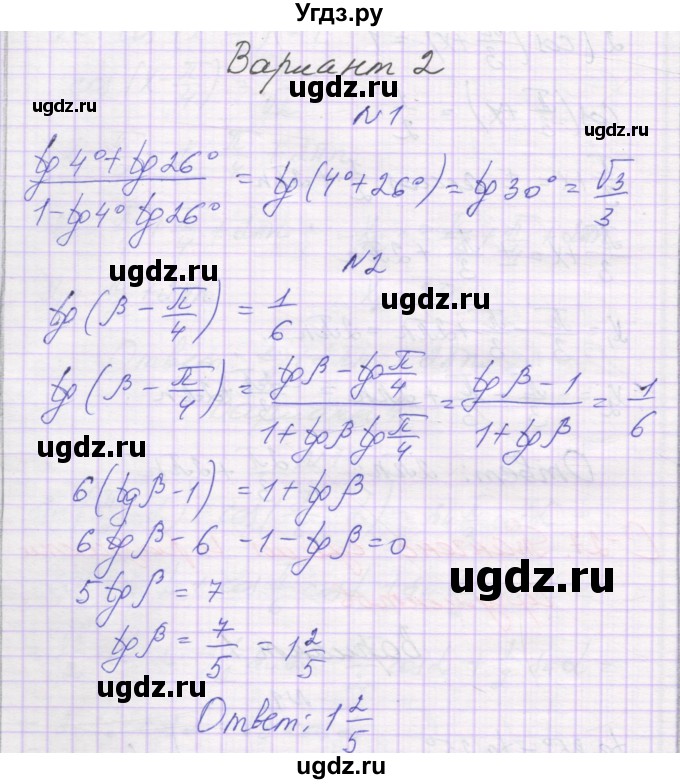 Угдз.ру
Вариант 2
ugdz.ru ugdz.ru
N1
ugdz.ru
(tg 4° + tg 26°) / (1 - tg 4° tg 26°) = tg (4° + 26°) = tg 30° = √3/3
N2
ugdz.ru
ugdz.ru
tg (β - π/4) = 1/6
tg (β - π/4) = (tg β - tg π/4) / (1 + tg β tg π/4) = (tg β - 1) / (1 + tg β) = 1/6
ugdz.ru
ugdz.ru
6 (tg β - 1) = 1 + tg β
6 tg β - 6 - 1 - tg β = 0
ugdz.ru
5 tg β = 7
tg β = 7/5 = 1 2/5
ugdz.ru
Ответ: 1 2/5
ugdz.ru